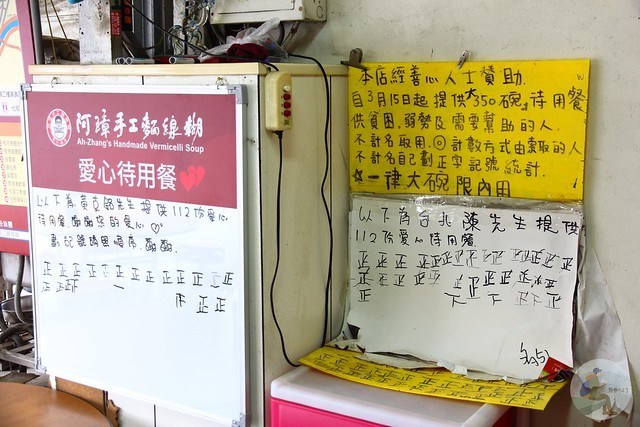 阿璋手工麵線糊
Ah-Zhang's Handmade Vermicelli Soup
愛心待用餐
以下為黃克銘先生提供112份愛心
待用餐,謝謝您的愛心♡
劃記號請照順序,謝謝.
正正正正正正正正正正正
正正正 一
下 正 正
本店經善心人士贊助
自3月15日起提供大350碗,待用餐
供貧困,弱勢及需要幫助的人.
不計名取用.◎計數方式由索取的人
不計名自己劃正字記號統計.
☆一律大碗限內用
以下為台北陳先生提供
112份愛心待用餐
正正正正正正正正正正正正
正正正正正 正正正正正
正 下 下 正下正